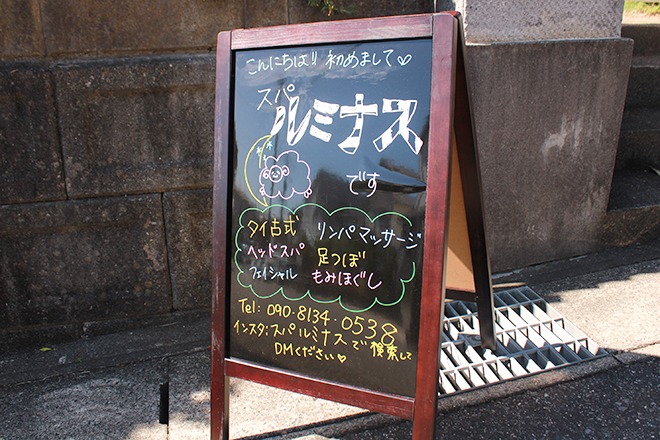 こんにちは!! 初めまして♡
スパ
ルミナス
です
タイ古式 リンパマッサージ
ヘッドスパ 足つぼ
フェイシャル もみほぐし
Tel: 090-8134-0538
インスタ: スパルミナスで検索して
DMください♡